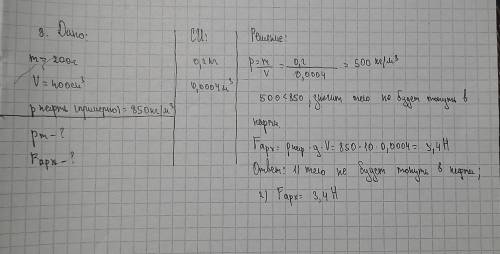 8. Дано:
m = 200г
V = 400см³
p нефть (примерно) = 850кг/м³
pт - ?
Fарх - ?
СИ:
0,2 кг
0,0004 м³
Решение:
p = m/V = 0,2/0,0004 = 500 кг/м³
500 < 850, значит тело не будет тонуть в
нефти.
Fарх = pнеф · g · V = 850 · 10 · 0,0004 = 3,4Н
Ответ: 1) тело не будет тонуть в нефти;
2) Fарх = 3,4 Н